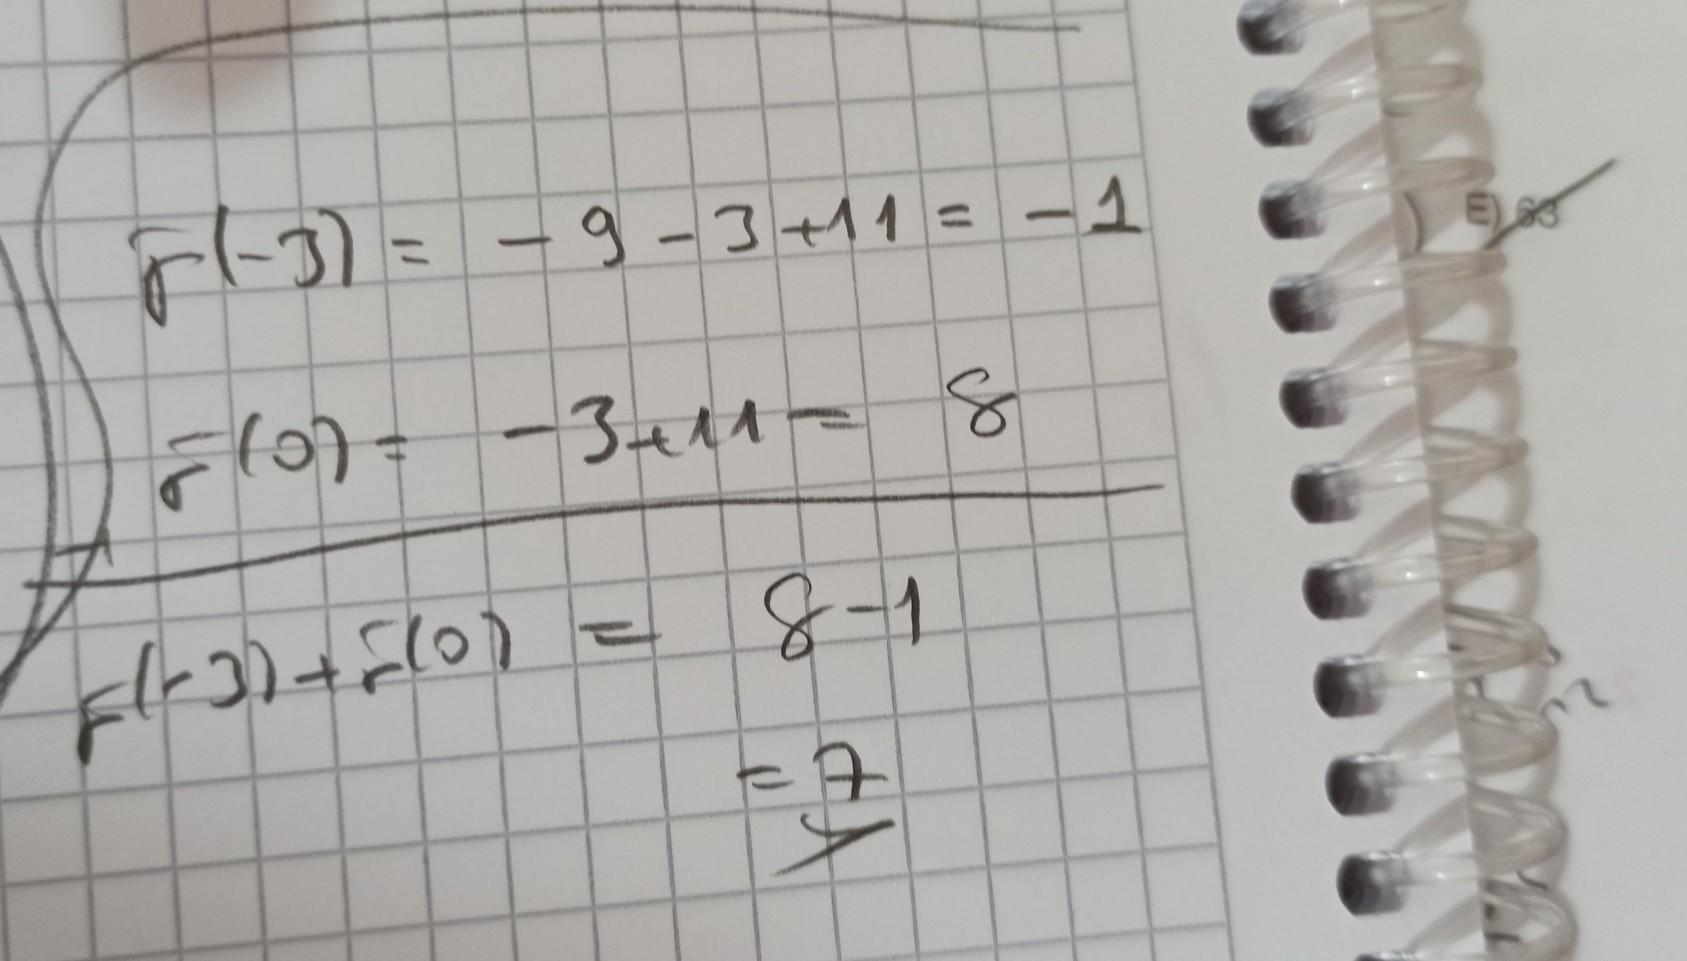 F(-3) = -9-3+11 = -1
F(0) = -3+11 = 8
F(-3)+F(0) = 8-1
= 7
E)